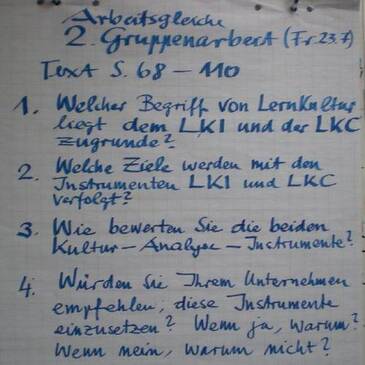 Arbeitsgleiche
2. Gruppenarbeit (Fr. 23.7)
Text S. 68 – 110
1. Welcher Begriff von Lernkultur
liegt dem LKI und der LKC
zugrunde?
2. Welche Ziele werden mit den
Instrumenten LKI und LKC
verfolgt?
3. Wie bewerten Sie die beiden
Kultur – Analyse – Instrumente?
4. Würden Sie Ihrem Unternehmen
empfehlen, diese Instrumente
einzusetzen? Wenn ja, warum?
Wenn nein, warum nicht?